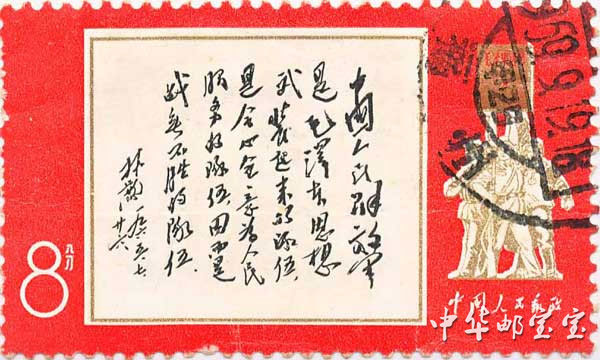 中國人民解放軍
是毛澤东思想
武装起来的队伍,
是全心全意为人民
服务的队伍,因而是
战无不胜的队伍.
林彪一九六五、七、
廿六
8
八分
中国人民邮政
中华邮宝宝